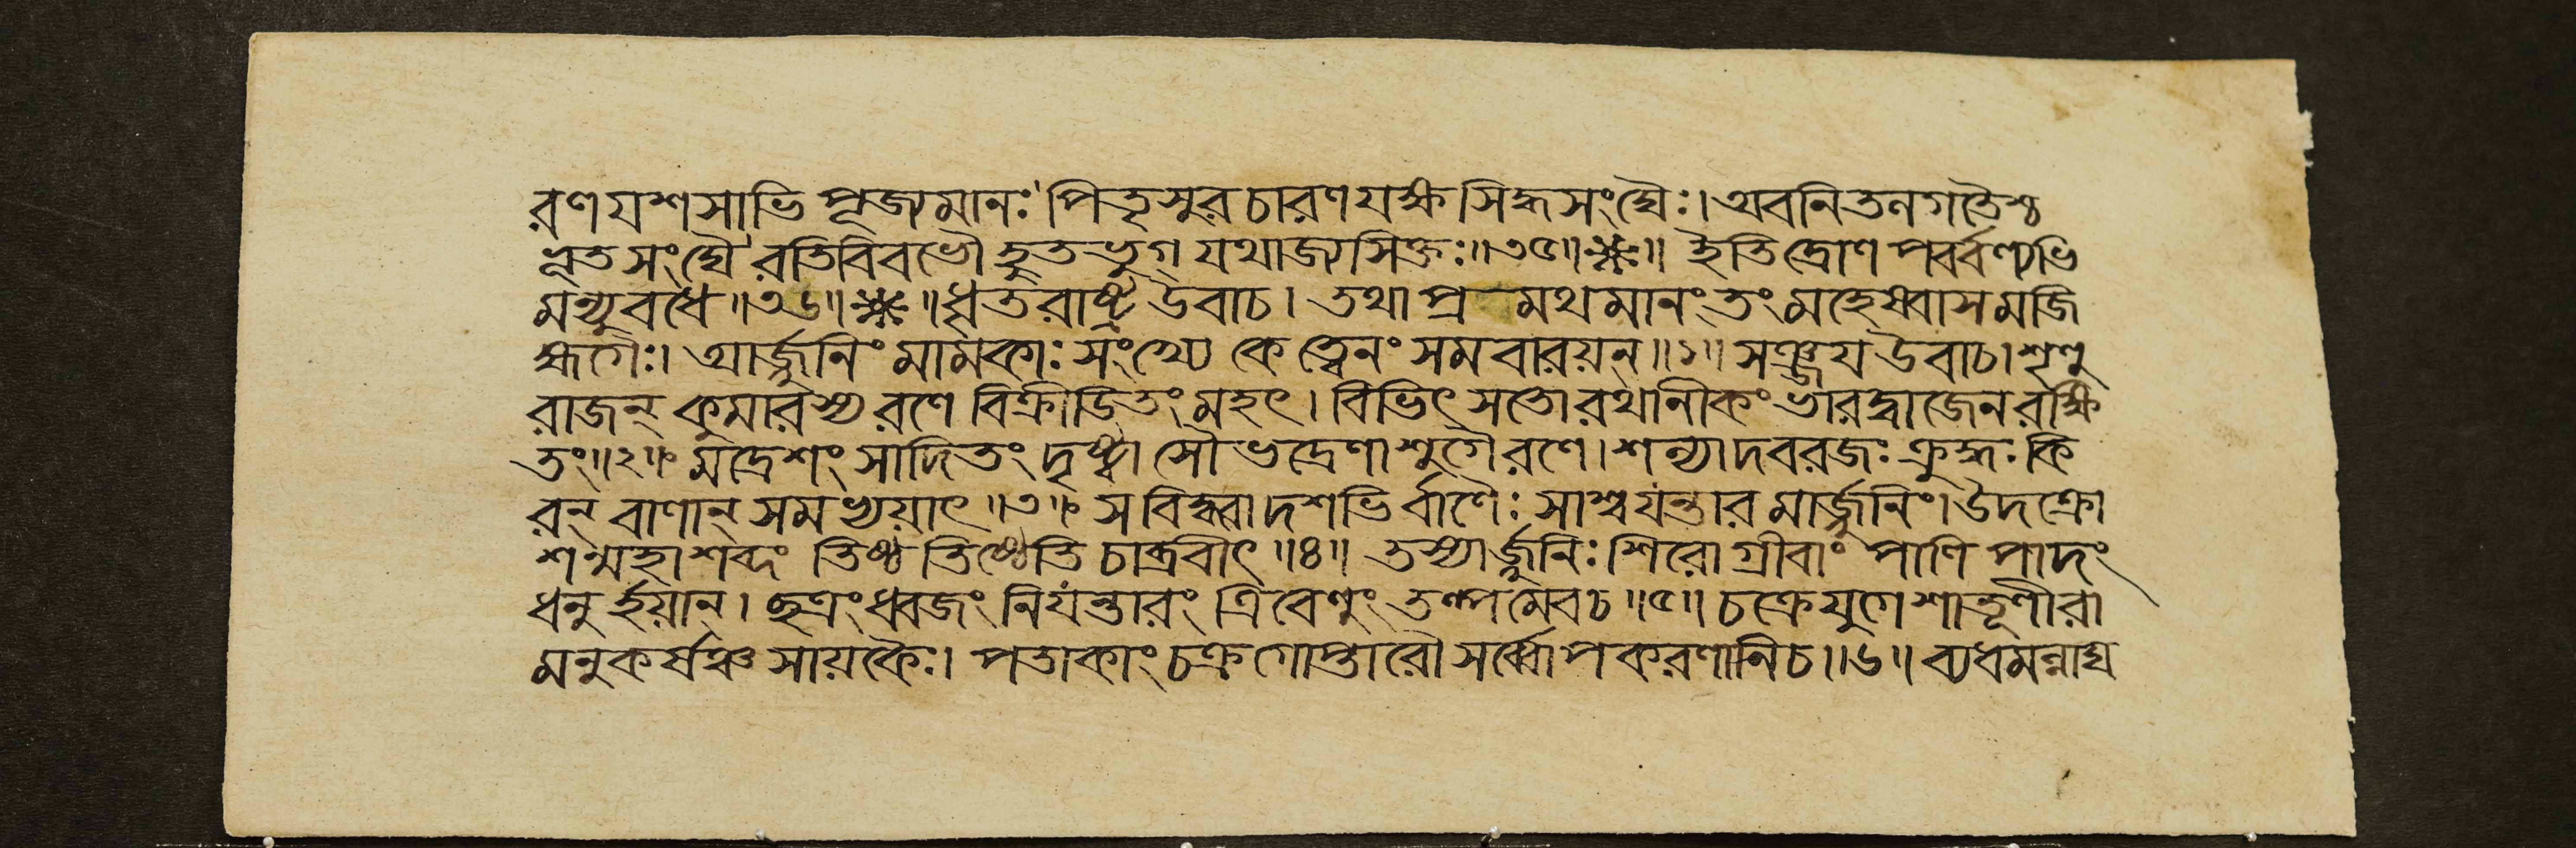 রণযশসাভিপূজ্যমানঃ পিতৃসুরচারণযক্ষসিদ্ধসংঘৈঃ। অবনিতনগতৈশ্চ
ভূতসংঘৈ রতিবিবভৌ হুতভুগ্ যথাজ্যসিক্তঃ॥৩৫॥❈॥ ইতি দ্রোণপর্ব্বণ্যভি
মন্যুবধে ॥৩৬॥❈॥ ধৃতরাষ্ট্র উবাচ। তথা প্রমথমানং তং মহেষ্বাসমজি
হ্মগৈঃ। আর্জ্জুনিং মামকাঃ সংখ্যে কে ত্বেনং সমবারয়ন্॥১॥ সঞ্জয় উবাচ। শৃণু
রাজন্ কুমারস্য রণে বিক্রীডিতং মহৎ। বিভিৎসতো রথানীকং ভারদ্বাজেন রক্ষি
তং॥২॥ মদ্রেশং সাদিতং দৃষ্ট্বা সৌভদ্রেণাশুগৈ রণে। শল্যাদবরজঃ ক্রুদ্ধঃ কি
রন্ বাণান্ সমভ্যয়াৎ॥৩॥ স বিদ্ধ্বা দশভির্বাণৈঃ সাশ্বযন্তারমার্জ্জুনিং। উদক্রো
শন্মহাশব্দং তিষ্ঠ তিষ্ঠেতি চাব্রবীৎ॥৪॥ তস্যার্জ্জুনিঃ শিরোগ্রীবাং পাণিপাদং
ধনুর্হয়ান্। ছত্রং ধ্বজং নিযন্তারং ত্রিবেণুং তল্পমেব চ॥৫॥ চক্রে যুগেশাতূণীরা
মনুকর্ষঞ্চ সায়কৈঃ। পতাকাং চক্রগোপ্তারৌ সর্ব্বোপকরণানি চ॥৬॥ ব্যধমন্নাদ্য